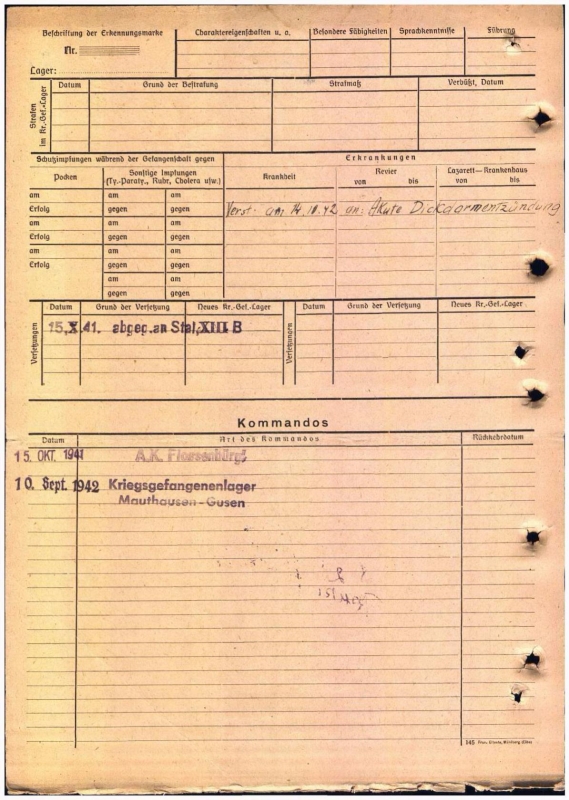 Beschriftung der Erkennungsmarke
Nr.
Lager:
Charaktereigenschaften u. a.
Besondere Fähigkeiten
Sprachkenntnisse
Führung
Strafen
im Kr.-Gef.-Lager
Datum
Grund der Bestrafung
Strafmaß
Verbüßt, Datum
Schutzimpfungen während der Gefangenschaft gegen
Erkrankungen
Pocken
Sonstige Impfungen
(Ty.-Paraty., Ruhr, Cholera usw.)
Krankheit
Revier
von bis
Lazarett—Krankenhaus
von bis
am am am
Erfolg gegen gegen
Verst. am 14.10.42 an: Akute Dickdarmentzündung
am am am
Erfolg gegen gegen
am am am
Erfolg gegen gegen
am am
gegen gegen
Versetzungen
Datum
Grund der Versetzung
Neues Kr.-Gef.-Lager
Versetzungen
Datum
Grund der Versetzung
Neues Kr.-Gef.-Lager
15.X.41. abgeg. an Stal. XIII B
Kommandos
Datum
Art des Kommandos
Rückkehrdatum
15. OKT. 1941 A.K. Flossenbürg
10. Sept. 1942 Kriegsgefangenenlager
Mauthausen-Gusen
145